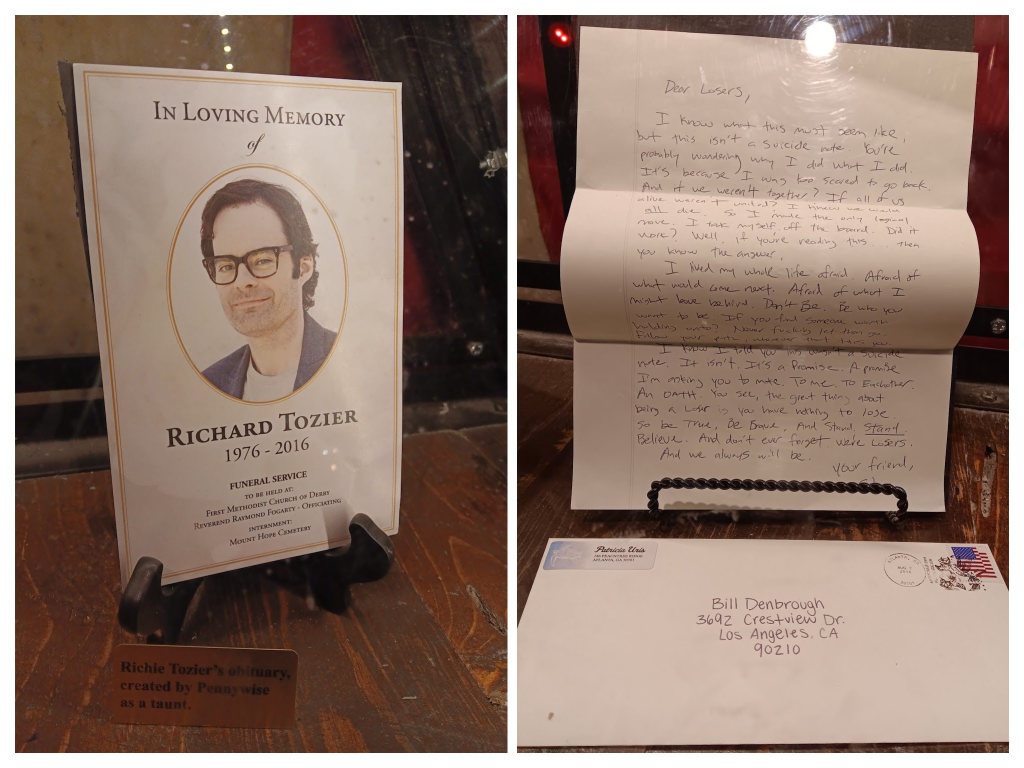 IN LOVING MEMORY
of
RICHARD TOZIER
1976 - 2016
FUNERAL SERVICE
TO BE HELD AT:
FIRST METHODIST CHURCH OF DERRY
REVEREND RAYMOND FOGARTY - OFFICIATING
INTERNMENT:
MOUNT HOPE CEMETERY
Richie Tozier's obituary,
created by Pennywise
as a taunt.
Dear Losers,
I know what this must seem like,
but this isn't a suicide note. You're
probably wondering why I did what I did.
It's because I was too scared to go back.
And if we weren't together? If all of us
alive weren't united? I knew we would
all die. So I made the only logical
move. I took myself off the board. Did it
work? Well, if you're reading this... then
you know the answer.
I lived my whole life afraid. Afraid of
what would come next. Afraid of what I
might leave behind. Don't Be. Be who you
want to be. If you find someone worth
holding onto? Never fucking let them go.
Follow your path, wherever that takes you.
I know I told you this wasn't a suicide
note. It isn't. It's a Promise. A promise
I'm asking you to make. To me. To Eachother.
An OATH. You see, the great thing about
being a Loser is you have nothing to lose.
So be True, Be Brave, And Stand. Stand.
Believe. And don't ever forget we're Losers.
And we always will be.
your friend,
Patricia Uris
ATLANTA, GA
Bill Denbrough
3692 Crestview Dr.
Los Angeles, CA
90210